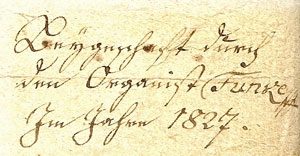 Beygeschaft durch
den Organist Funke
Im Jahre 1827.